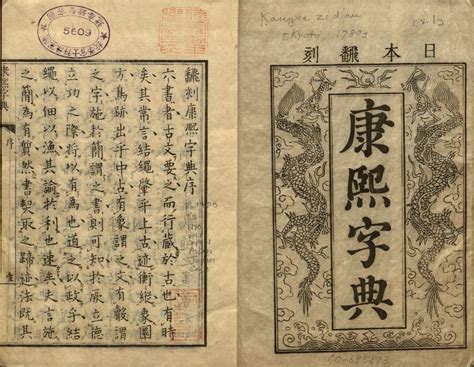 日本飜刻
康熙字典
飜刻康熙字典序
六書者古文要之而行藏於古也有時
矣其常言結繩肇乎上古迹衡縱象圓
方鳥跡出乎中古有象謂之文有聲謂
之字施於簡謂之書則可知於厥立德
立功之際將以有為也道之以政乎結
繩以佃以漁其諭於利也速矣史言施
之簡為有然書契取之蹄迹法既其
序
5609